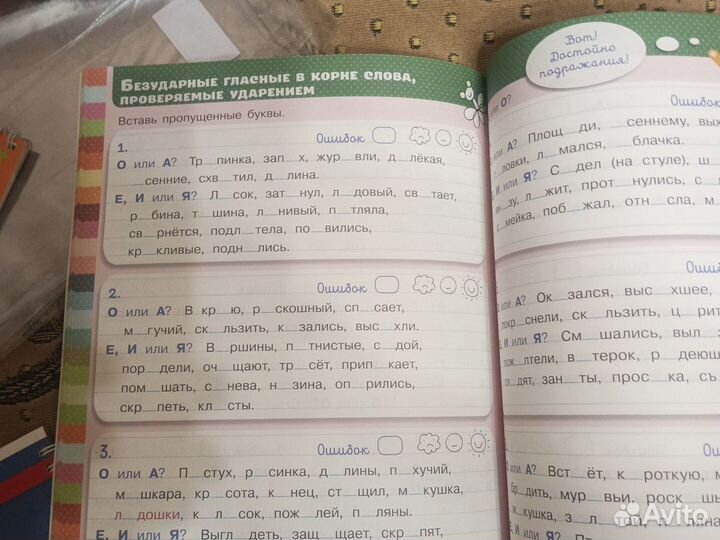 БЕЗУДАРНЫЕ ГЛАСНЫЕ В КОРНЕ СЛОВА,
ПРОВЕРЯЕМЫЕ УДАРЕНИЕМ
Вставь пропущенные буквы.
1.
Ошибок
О или А? Тр_пинка, зап_х, жур_вли, д_лёкая,
_сенние, схв_тил, д_лина.
Е, И или Я? Л_сок, зат_нул, л_довый, св_тает,
р_бина, т_шина, л_нивый, п_тляла,
св_рнётся, подл_тела, по_вились,
кр_кливые, подн_лись.
2.
Ошибок
О или А? В кр_ю, р_скошный, сп_сает,
м_гучий, ск_льзить, к_зались, выс_хли.
Е, И или Я? В_ршины, п_тнистые, с_дой,
пор_дели, оч_щают, тр_сёт, прип_кает,
пом_шать, с_нева, н_зина, оп_рились,
скр_петь, кл_сты.
3.
Ошибок
О или А? П_стух, р_синка, д_лины, п_хучий,
м_шкара, кр_сота, к_нец, ст_щил, м_кушка,
л_дошки, к_л_сок, пож_лей, п_ляны.
Е, И или Я? Выгл_деть, защ_щает, скр_пят,
Вот!
Достойно
подражания!
или О?
Ошибок
или А? Площ_ди, _сеннему, вых
с_ловки, л_мался, _блачка.
Е, И или Я? С_дел (на стуле), ш
вн_зу, л_жит, прот_нулись, с_л
с_мейка, поб_жал, отн_сла, м_
Ошиб
или А? Ок_зался, выс_хшее,
покр_снели, ск_льзить, ц_рит
или Я? См_шались, выл_
пож_лтели, в_терок, р_деющ
гл_дят, зан_ты, прос_ка, съ_
Ош
или А? Вст_ёт, к_роткую, м
бр_дить, мур_вьи, роск_шь
м_кушка, з_л_той, п_лян
или Я? Пт
Avito